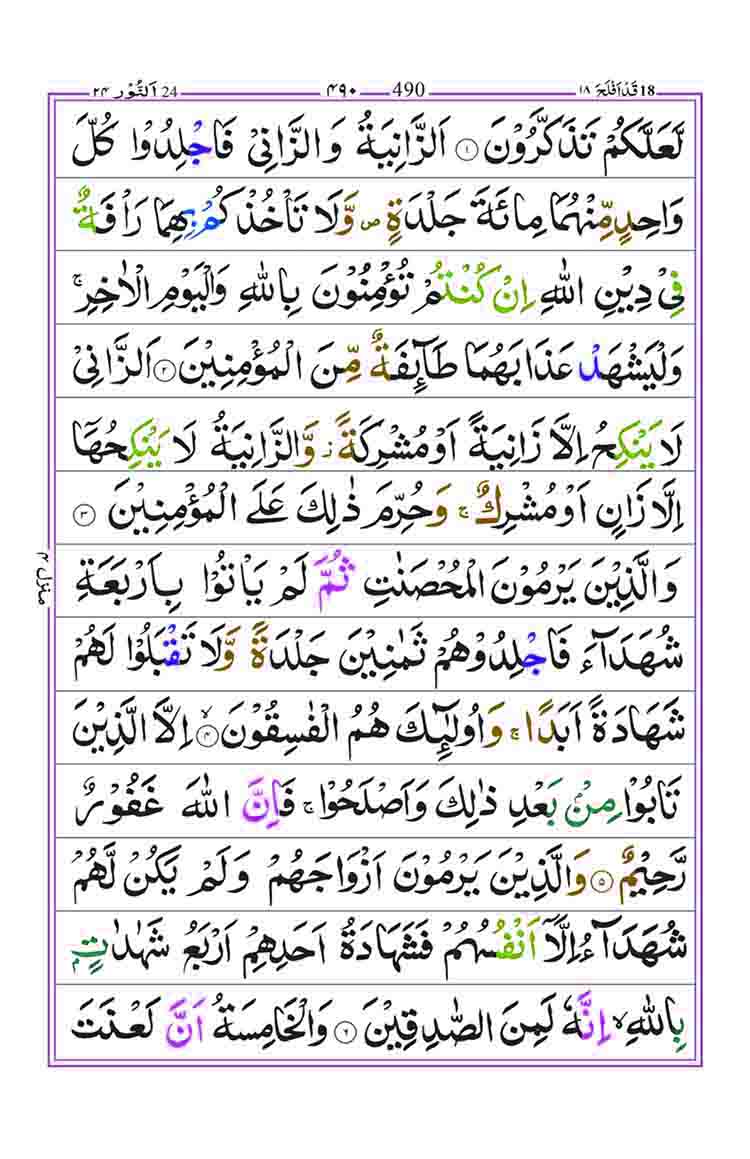 18 قَدْ اَفْلَحَ ۱۸ 490 ۴۹۰ 24 اَلنُّوْر ۲۴
لَّعَلَّكُمْ تَذَكَّرُوْنَ ۱ اَلزَّانِيَةُ وَالزَّانِيْ فَاجْلِدُوْا كُلَّ
وَاحِدٍ مِّنْهُمَا مِائَةَ جَلْدَةٍ ۪ وَّلَا تَاْخُذْكُمْ بِهِمَا رَاْفَةٌ
فِيْ دِيْنِ اللّٰهِ اِنْ كُنْتُمْ تُؤْمِنُوْنَ بِاللّٰهِ وَالْيَوْمِ الْاٰخِرِ ۚ
وَلْيَشْهَدْ عَذَابَهُمَا طَآئِفَةٌ مِّنَ الْمُؤْمِنِيْنَ ۲ اَلزَّانِيْ
لَا يَنْكِحُ اِلَّا زَانِيَةً اَوْ مُشْرِكَةً ؗ وَّالزَّانِيَةُ لَا يَنْكِحُهَاۤ
اِلَّا زَانٍ اَوْ مُشْرِكٌ ۚ وَحُرِّمَ ذٰلِكَ عَلَى الْمُؤْمِنِيْنَ ۳
وَالَّذِيْنَ يَرْمُوْنَ الْمُحْصَنٰتِ ثُمَّ لَمْ يَاْتُوْا بِاَرْبَعَةِ
شُهَدَآءَ فَاجْلِدُوْهُمْ ثَمٰنِيْنَ جَلْدَةً وَّلَا تَقْبَلُوْا لَهُمْ
شَهَادَةً اَبَدًا ۚ وَاُولٰٓئِكَ هُمُ الْفٰسِقُوْنَ ۴ۙ اِلَّا الَّذِيْنَ
تَابُوْا مِنْۢ بَعْدِ ذٰلِكَ وَاَصْلَحُوْا ۚ فَاِنَّ اللّٰهَ غَفُوْرٌ
رَّحِيْمٌ ۵ وَالَّذِيْنَ يَرْمُوْنَ اَزْوَاجَهُمْ وَلَمْ يَكُنْ لَّهُمْ
شُهَدَآءُ اِلَّاۤ اَنْفُسُهُمْ فَشَهَادَةُ اَحَدِهِمْ اَرْبَعُ شَهٰدٰتٍۭ
بِاللّٰهِ ۙ اِنَّهٗ لَمِنَ الصّٰدِقِيْنَ ۶ وَالْخَامِسَةُ اَنَّ لَعْنَتَ
منزل ۴